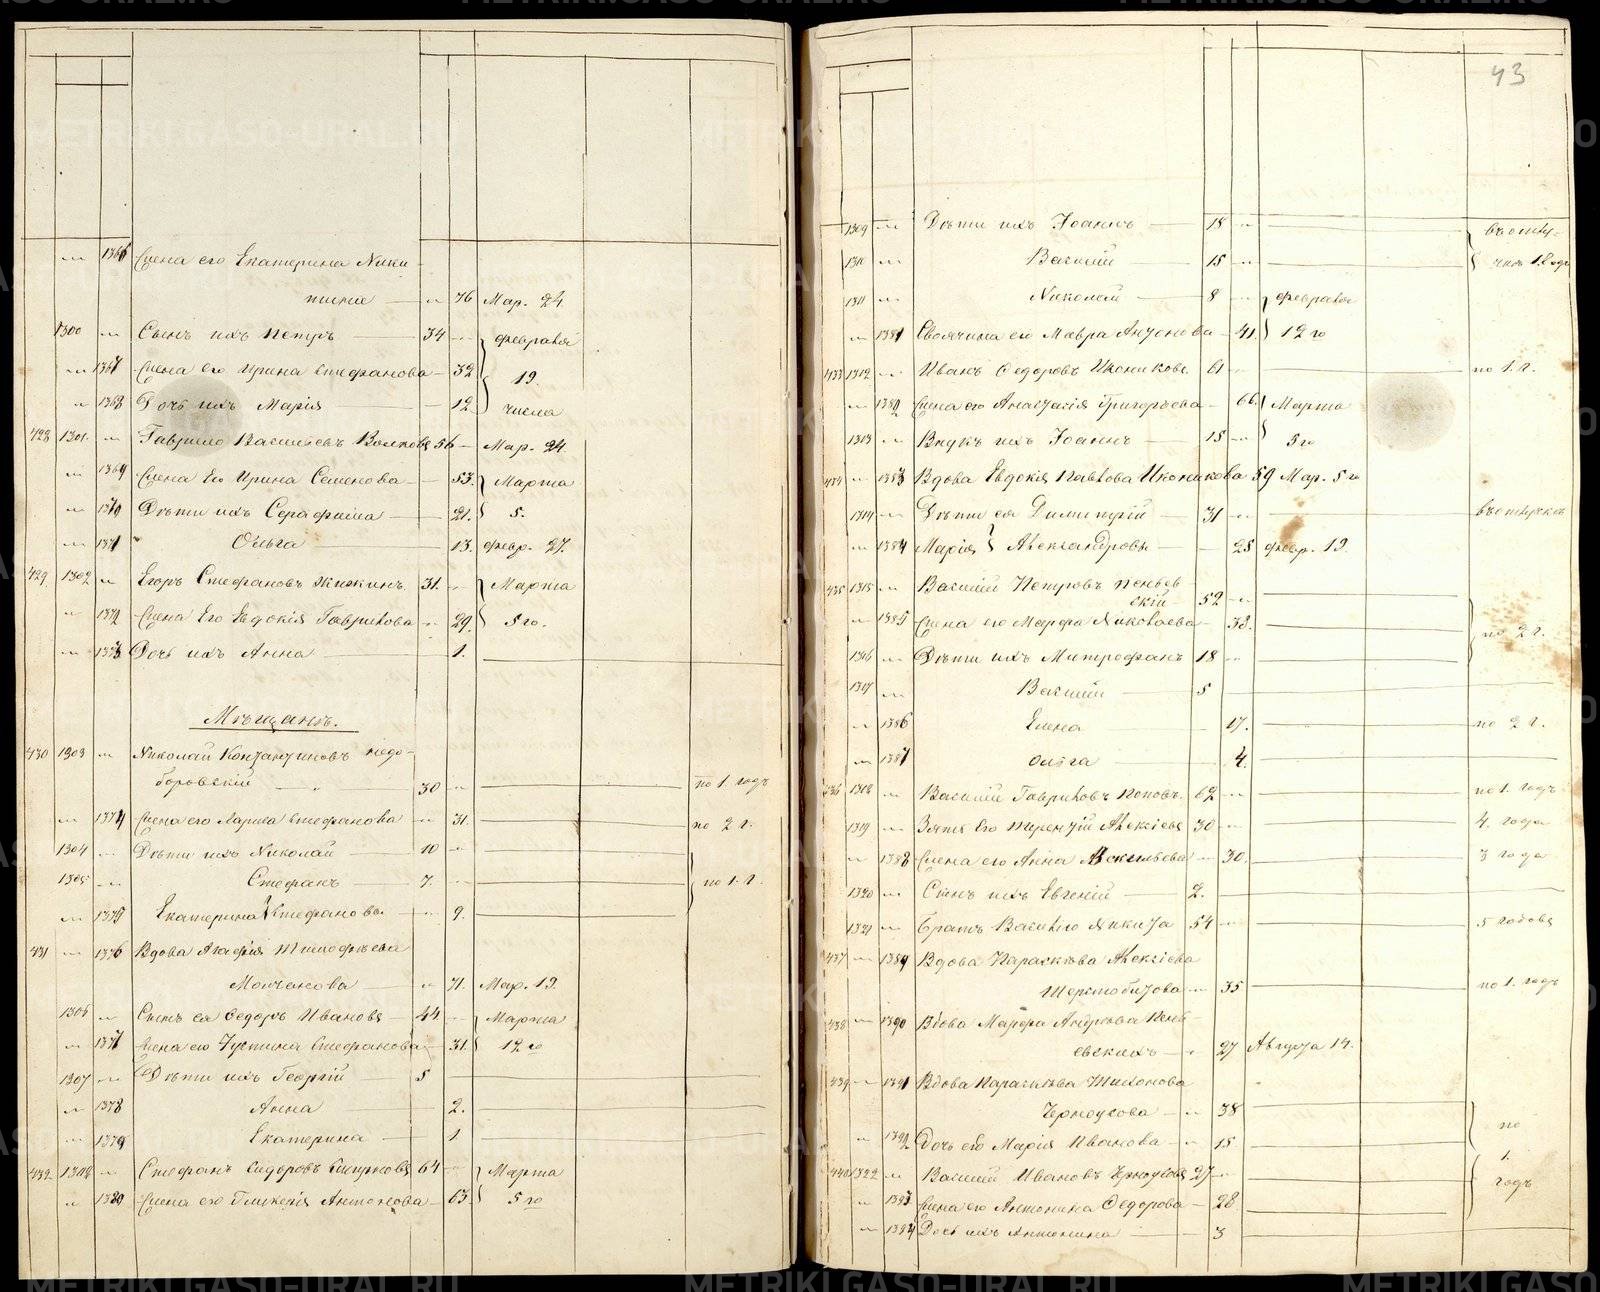 1366 Жена его Екатерина Ники-
тина 76 Мар. 24.
1300 Сынъ ихъ Петръ 34 февраля
1367 Жена его Ирина Стефанова 32 19.
1368 Дочь ихъ Марія 12. числа
428 1301. Гаврило Васильевъ Волковъ 56 Мар. 24.
1369 Жена Его Ирина Семенова 53. Марта
1370 Дѣти ихъ Серафима 21. 5.
1371 Ольга 13. февр. 27.
429 1302 Егоръ Стефановъ Жижинъ 31. Марта
1372 Жена Его Евдокія Гаврилова 29. 5 го.
1373 Дочь ихъ Анна 1.
Мѣщанъ.
430 1303 Николай Константиновъ Недо-
боровскій 30 по 1. годъ
1374 Жена его Лариса Стефанова 31. по 2 г.
1304 Дѣти ихъ Николай 10
1305 Стефанъ 7. по 1. г.
1375 Екатерина Стефановы 9.
431 1376 Вдова Агафія Тимофѣева
Молчанова 71. Мар. 19.
1306 Сынъ ея Федоръ Ивановъ 44 Марта
1377 Жена его Іустина Стефанова 31. 12 го
1307 Дѣти ихъ Георгій 5
1378 Анна 2.
1379 Екатерина 1
432 1308 Стефанъ Сидоровъ 64 Марта
1380 Жена его Гликерія Антонова 63. 5 го
43
1309 Дѣти ихъ Іоаннъ 18 въ отлу-
1310 Василій 15 чкѣ 1. годъ
1311 Николай 8 февраля
1381 Своячина его Мавра Антонова 41. 12 го
433 1312 Иванъ Федоровъ Иконниковъ 61 по 1. г.
1382 Жена его Анастасія Григорьева 66. Марта
1313 Внукъ ихъ Іоаннъ 15 5 го
434 1383 Вдова Евдокія Павлова Иконникова 59 Мар. 5 го
1314 Дѣти ея Димитрій 31 въ отлучкѣ
1384 Марія Александровы 28 февр. 19.
435 1315 Василій Петровъ Пеньев-
скій 52
1385 Жена его Марфа Яковлева 38. по 2 г.
1316 Дѣти ихъ Митрофанъ 18
1317 Василій 5
1386 Елена 17. по 2 г.
1387 Ольга 4.
436 1318 Василій Гавриловъ Поповъ 62 по 1. годъ
1319 Зять Его Терентій Алексѣевъ 30 4. года
1388 Жена его Анна Васильева 30. 3 года
1320 Сынъ ихъ Евгеній 2.
1321 Братъ Василію Никита 54 5 годовъ
437 1389 Вдова Параскева Алексѣева
35 по 1. годъ
438 1390 Вдова Марфа Андреева Пень-
евскихъ 27 Августа 14.
439 1391 Вдова Параскева Тихонова
Черноусова 38
1392 Дочь его Марія Иванова 15 по
440 1322 Василій Ивановъ Черноусовъ 27 1.
1393 Жена его Антонина Федорова 28 годъ
1394 Дочь ихъ Антонина 3